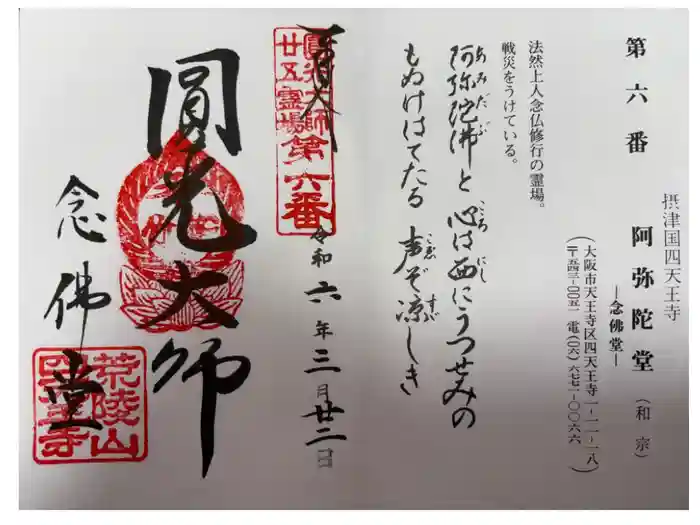 第六番
摂津国四天王寺
阿弥陀堂(和宗)
―念佛堂―
(大阪市天王寺区四天王寺一-一一-一八
〒五四三-〇〇五一 電(〇六)六七七一-〇〇六六)
法然上人念仏修行の霊場。
戦災をうけている。
阿弥陀佛と 心は西にうつせみの
あみだぶ こころ にし
もぬけはてたる 声ぞ涼しき
こゑ すゞ
奉拝
圓光大師
廿五霊場第六番
令和六年三月廿二日
圓光大師
念佛堂
荒陵山
四天王寺